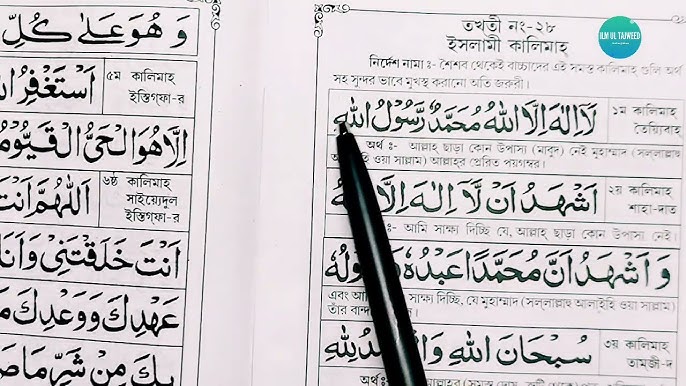 وَ هُوَ عَلٰى كُلِّ
৫ম কালিমাহ্
ইস্তিগফা-র
اَسْتَغْفِرُ
اِلَّا هُوَ الْحَىُّ الْقَيُّوْمُ
৬ষ্ঠ কালিমাহ্
সাইয়্যেদুল
ইস্তিগফা-র
اَللّٰهُمَّ اَنْتَ
اَنْتَ خَلَقْتَنِىْ وَ اَنَا
عَهْدِكَ وَ وَعْدِكَ
بِكَ مِنْ شَرِّ مَا
ILM UL TAJWEED
তখতী নং-২৮
ইসলামী কালিমাহ্
নির্দেশ নামা :- শৈশব থেকেই বাচ্চাদের এই সমস্ত কালিমাহ্ গুলি অর্থ
সহ সুন্দর ভাবে মুখস্থ করানো অতি জরুরী।
১ম কালিমাহ্
তৈয়্যিবাহ্
لَا اِلٰهَ اِلَّا اللّٰهُ مُحَمَّدٌ رَّسُوْلُ اللّٰهِ
অর্থ :- আল্লাহ্ ছাড়া কোন উপাস্য (মাবুদ) নেই মুহাম্মাদ (সল্লাল্লাহু
ওয়া সাল্লাম) আল্লাহ্‌র প্রেরিত পয়গম্বর।
২য় কালিমাহ্
শাহা-দাত
اَشْهَدُ اَنْ لَّا اِلٰهَ اِلَّا
আমি সাক্ষ্য দিচ্ছি যে, আল্লাহ্ ছাড়া কোন উপাস্য নেই।
وَ اَشْهَدُ اَنَّ مُحَمَّدًا عَبْدُهٗ
এবং সাক্ষ্য দিচ্ছি, যে মুহাম্মাদ (সল্লাল্লাহু আলাইহি ওয়া সাল্লাম)
তাঁর
৩য় কালিমাহ্
তামজী-দ
سُبْحَانَ اللّٰهِ لِلّٰهِ
অর্থ :-